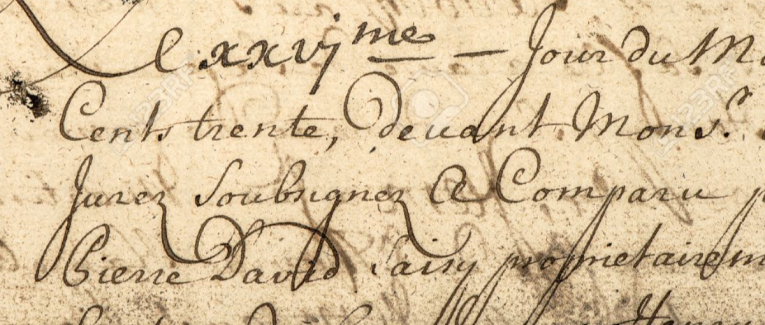 Le xxvj me - Jour du M
Cents trente, devant Mons.r
Jurez Soubsignez A Comparu p
Pierre David Saisy proprietaire